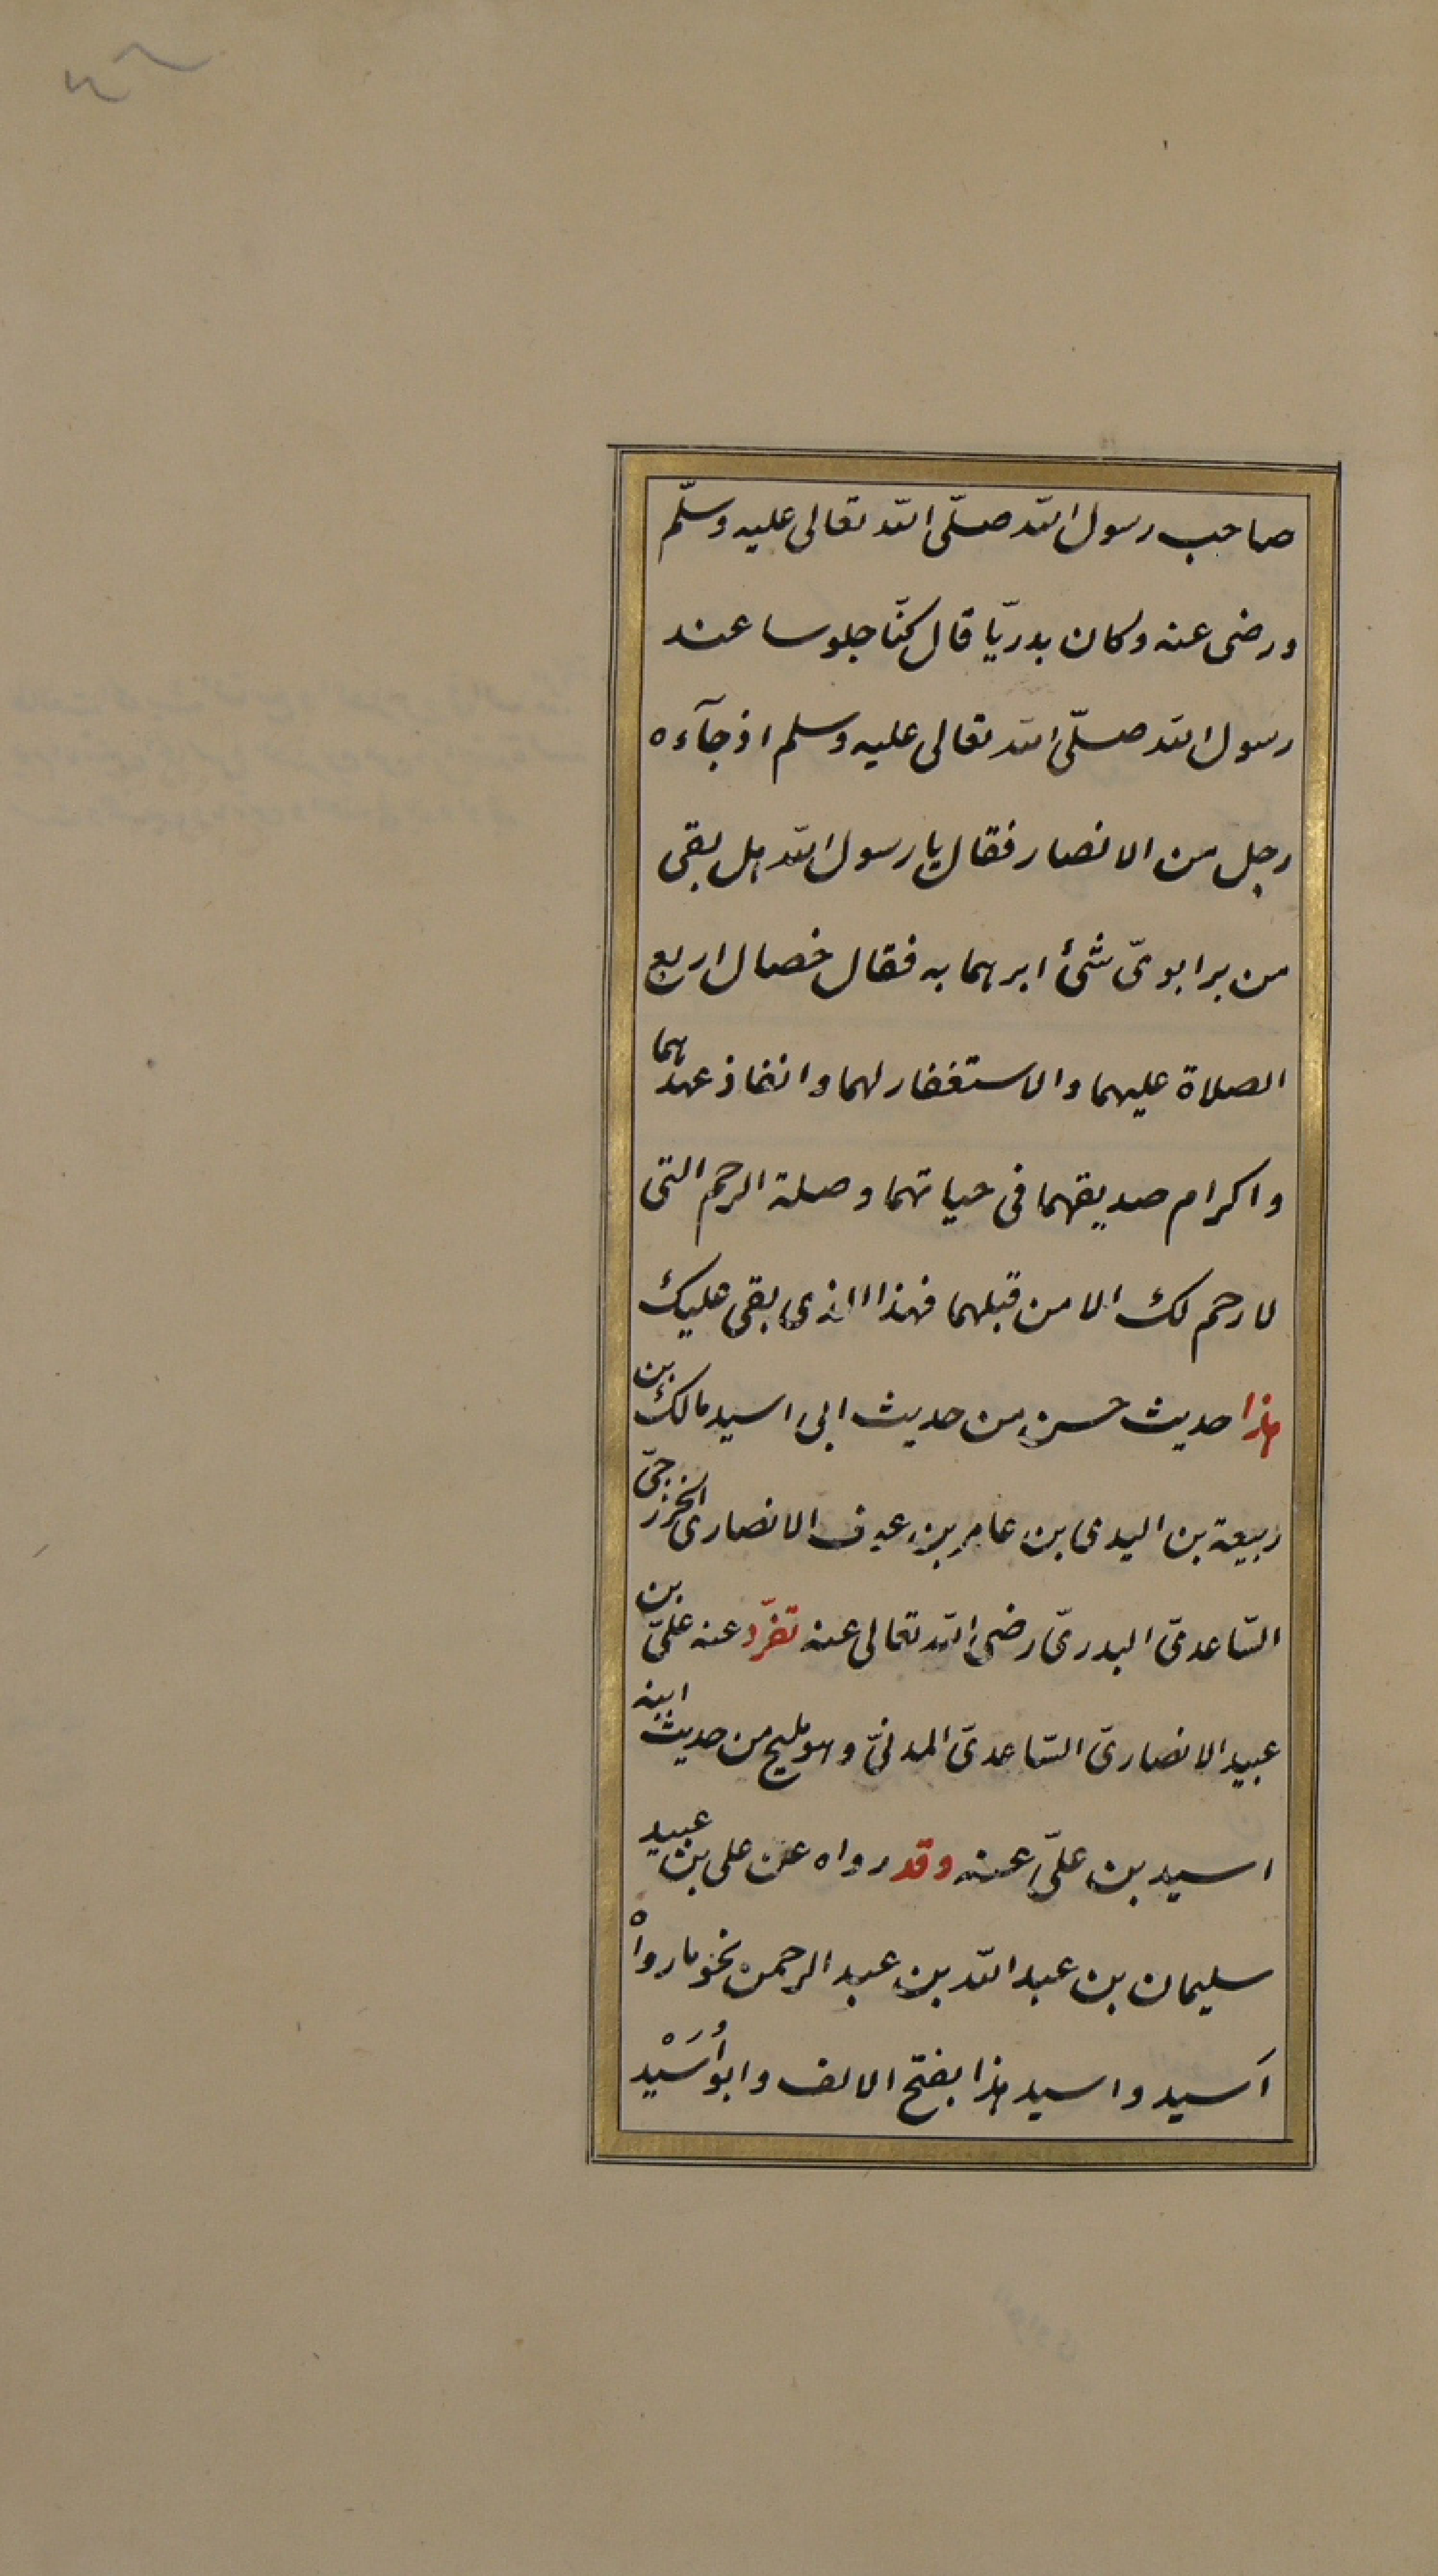 صاحب رسول الله صلّى الله تعالى عليه وسلّم
ورضى عنه وكان بدريّا قال كنّا جلوسا عند
رسول الله صلّى الله تعالى عليه وسلم اذ جآءه
رجل من الانصار فقال يا رسول الله هل بقى
من بر ابوىّ شئ ابرهما به فقال خصال اربع
الصلاة عليهما والاستغفار لهما وانفاذ عهدهما
واكرام صديقهما فى حياتهما وصلة الرحم التى
لا رحم لك الا من قبلهما فهذا الذى بقى عليك
هذا حديث حسن من حديث ابى اسيد مالك بن
ربيعة بن اليدى بن عامر بن عوف الانصارى الخزرجىّ
السّاعدىّ البدرىّ رضى الله تعالى عنه تفرّد عنه علىّ بن
عبيد الانصارىّ السّاعدىّ المدنىّ وهو مليح من حديث ابنه
اسيد بن علىّ عنه وقد رواه عن على بن عبيد
سليمان بن عبد الله بن عبد الرحمن نحو ما رواه
اَسيد واسيد هذا بفتح الالف وابو اُسَيْد